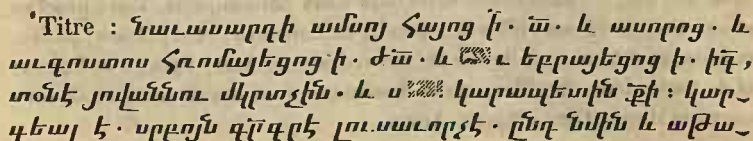 *Titre : նաւասարդի ամսոյ Հայոց ի՟ · ա՟ · և ասորոց · և
աւգոստոս Հռոմայեցոց ի · ժա՟ · և ւ եբրայեցոց ի · իգ՟,
տօնէ յովաննու մկրտչին · և ս կարապետին ք՟ի : կար֊
գեալ է · սրբոյն գր՟իգրէ լուսաւորչէ · ընդ նմին և աթա֊